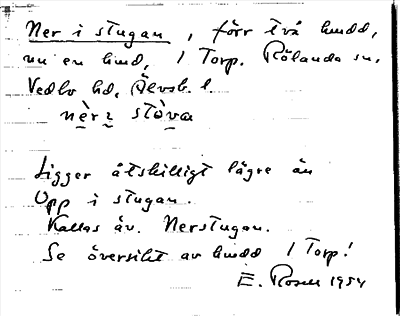 Ner i stugan, förr två hudd,
nu en hud, 1 Torp. Rölanda sn.
Vedbo hd, Älvsb. l.
nèr ɩ stòva
Ligger åtskilligt lägre än
Opp i stugan.
Kallas äv. Nerstugan.
Se översikt av hudd 1 Torp!
E. Rosell 1954